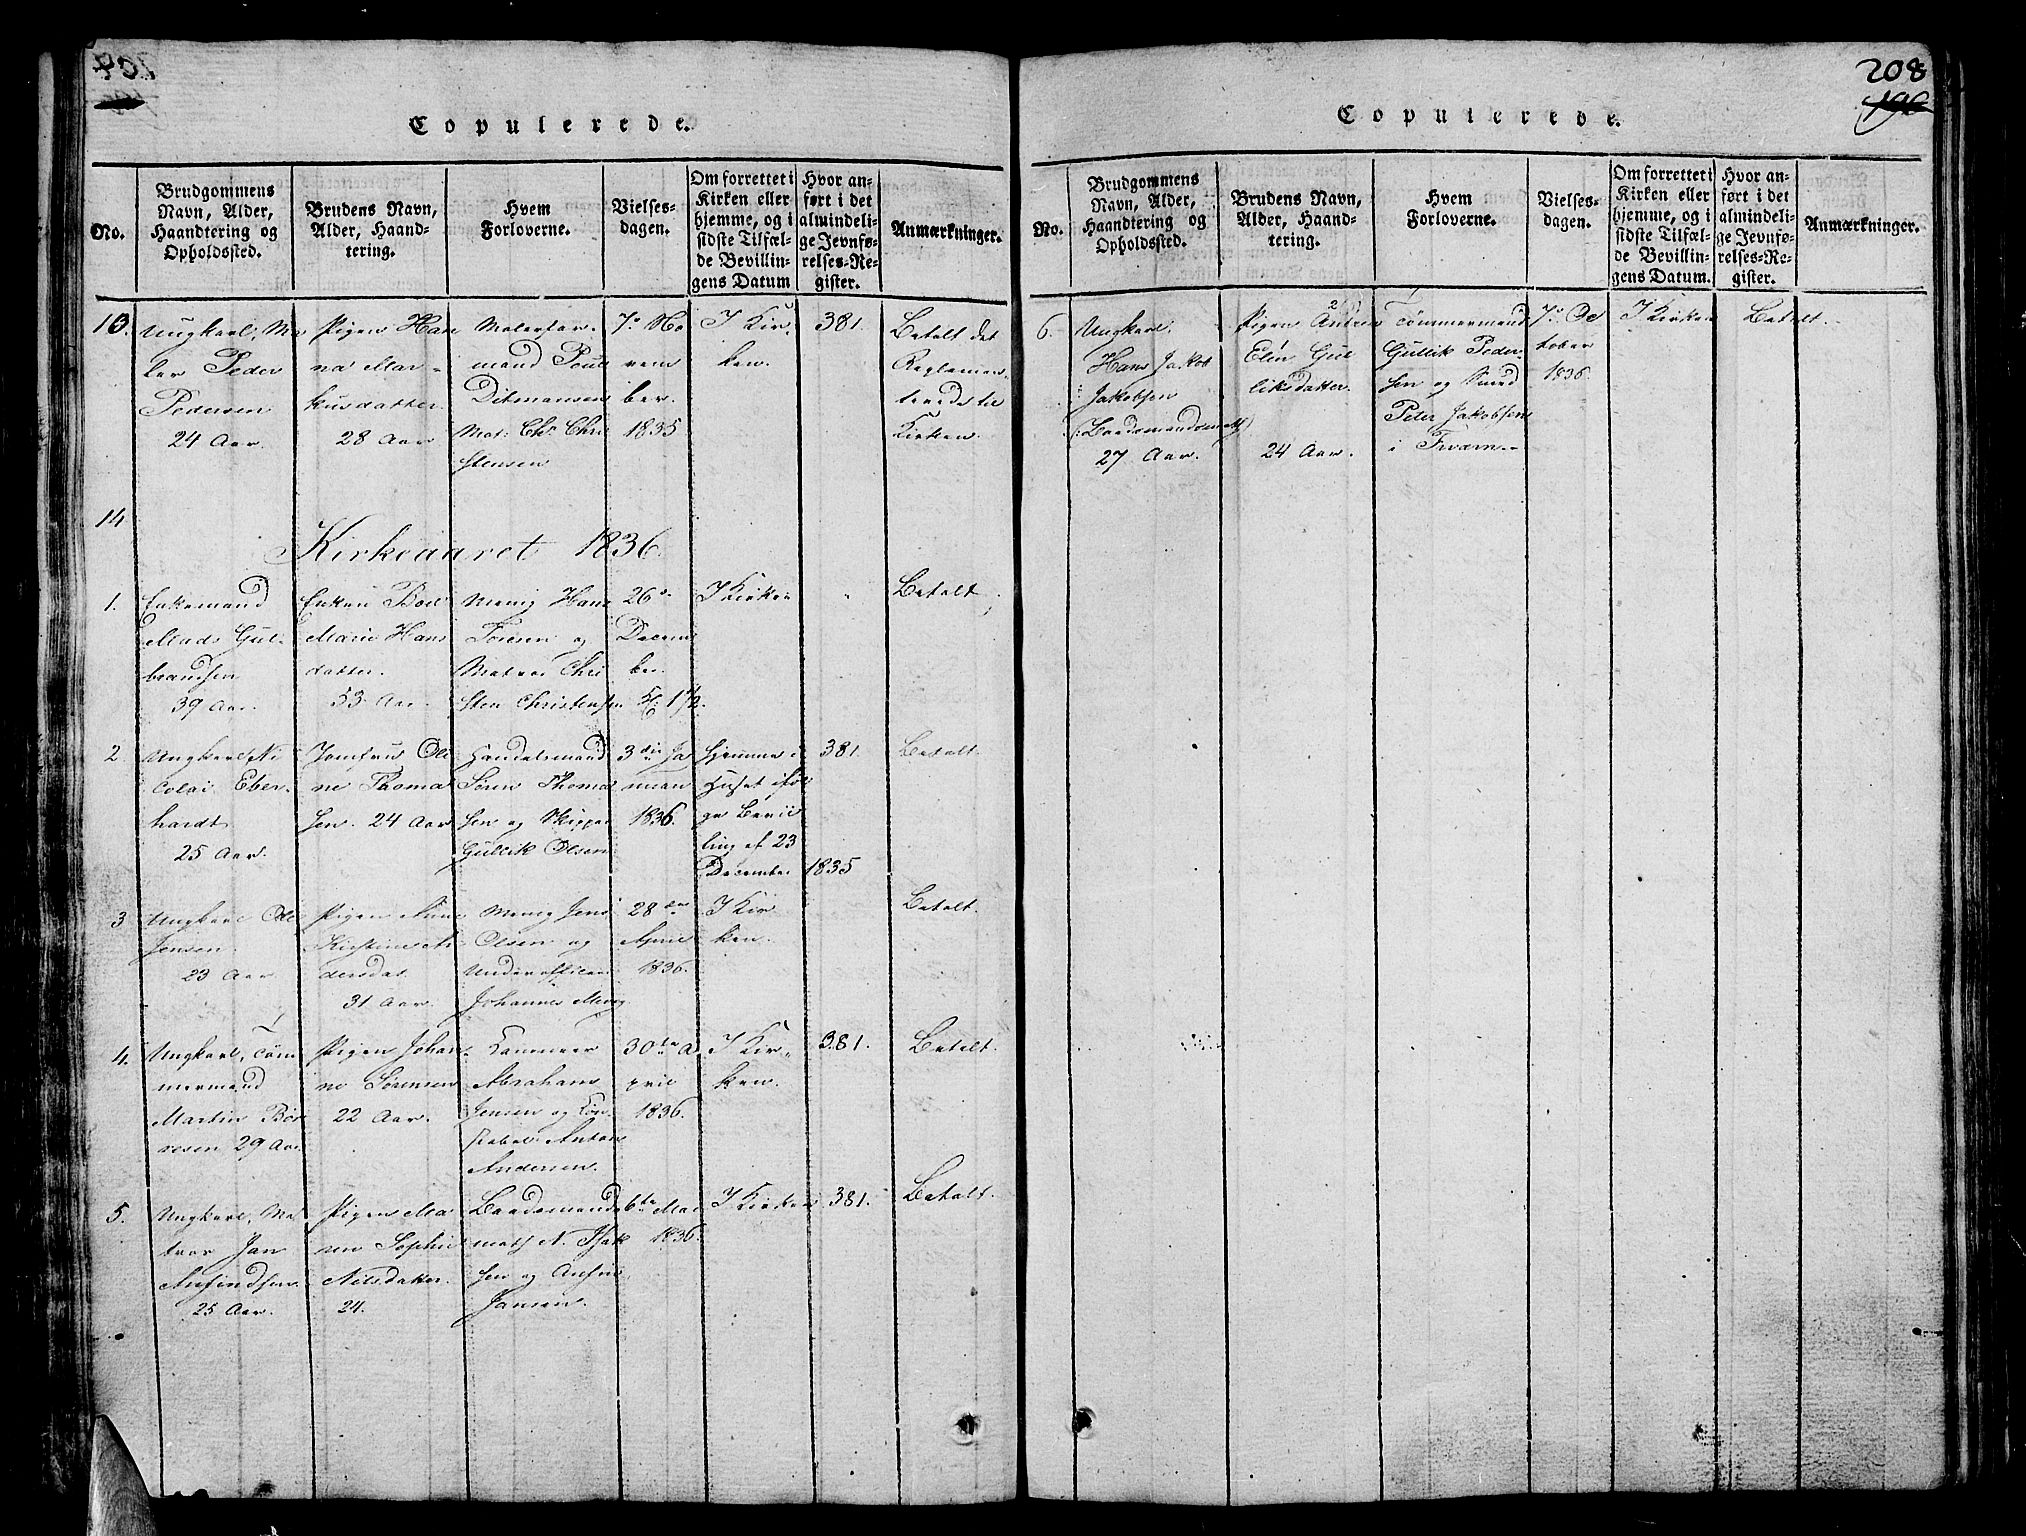 Copulerede.
No.
Brudgommens
Navn, Alder,
Haandtering og
Opholdssted.
Brudens Navn,
Alder, Haand-
tering.
Hvem
Forloverne.
Vielses-
dagen.
Om forrettet i
Kirken eller
hjemme, og i
sidste Tilfæl-
de Bevillin-
gens Datum
Hvor an-
ført i det
almindeli-
ge Jevnfø-
relses-Re-
gister.
Anmærkninger.
13.
Ungkarl, Ma
ler Peder
Pedersen
24 Aar.
Pigen Han
na Mar-
kusdatter.
28 Aar
mand Poul
Ditmansen
Mat: Chr Chri
stensen
7de No
vem
ber.
1835
I Kir-
ken.
381.
Betalt det
Reglemen-
terede til
Kirken.
14
Kirkeaaret 1836.
1.
Enkemand
Mads Gul-
brandsen
39 Aar.
Enken Boel
Marie Hans
datter.
53 Aar.
Menig Hans
og
Matros Chri
sten Christensen
26de
Decem
ber.
I Kirken
Betalt
2
Ungkarl Ni
colai Eber-
hardt
25 Aar.
Jomfru Oli
ne Thoma
sen. 24 Aar
Handelsmand
Søren Thoma
sen og Skipper
Gullik Olsen
3die Ja
nuari
1836.
Hjemme i
Huset iføl
ge Bevil
ling af 23
December 1835
381.
Betalt.
3
Ungkarl Ole
Jensen.
23 Aar
Pigen Anne
Kirstine An
dersdat.
31 Aar.
Menig Jens
Olsen og
Underofficer
Johannes
28de
April
1836.
I Kir
ken.
Betalt.
4.
Ungkarl, Tøm
mermand
Martin Bør
resen 29 Aar
Pigen Johan-
ne Sørensen
22 Aar.
Kanoneer
Abraham
Jensen og Kon-
stabel Anton
Andersen.
30te A
pril
1836.
I Kir-
ken.
381.
Betalt.
5.
Ungkarl, Ma
tros Jan
Anfindsen
25 Aar.
Pigen Ma
ren Sophie
Nilsdatter.
24.
Baadsmands
math N. Isak
sen og Anfin
Jansen.
6te Mai
1836.
I Kirken
381.
Betalt.
208
196
Copulerede.
No.
Brudgommens
Navn, Alder,
Haandtering og
Opholdssted.
Brudens Navn,
Alder, Haand-
tering.
Hvem
Forloverne.
Vielses-
dagen.
Om forrettet i
Kirken eller
hjemme, og i
sidste Tilfæl-
de Bevillin-
gens Datum.
Hvor an-
ført i det
almindeli-
ge Jevnfø-
relses-Re-
gister.
Anmærkninger.
6.
Ungkarl,
Hans Jakob
Jakobsen
27 Aar.
Pigen Andrea
Elen Gul
liksdatter.
24 Aar.
Tømmermand
Gullik Peder-
sen og Smed
Peter Jakobsen
i Tværn.
7de Oc
tober
1836.
I Kirken
Betalt.